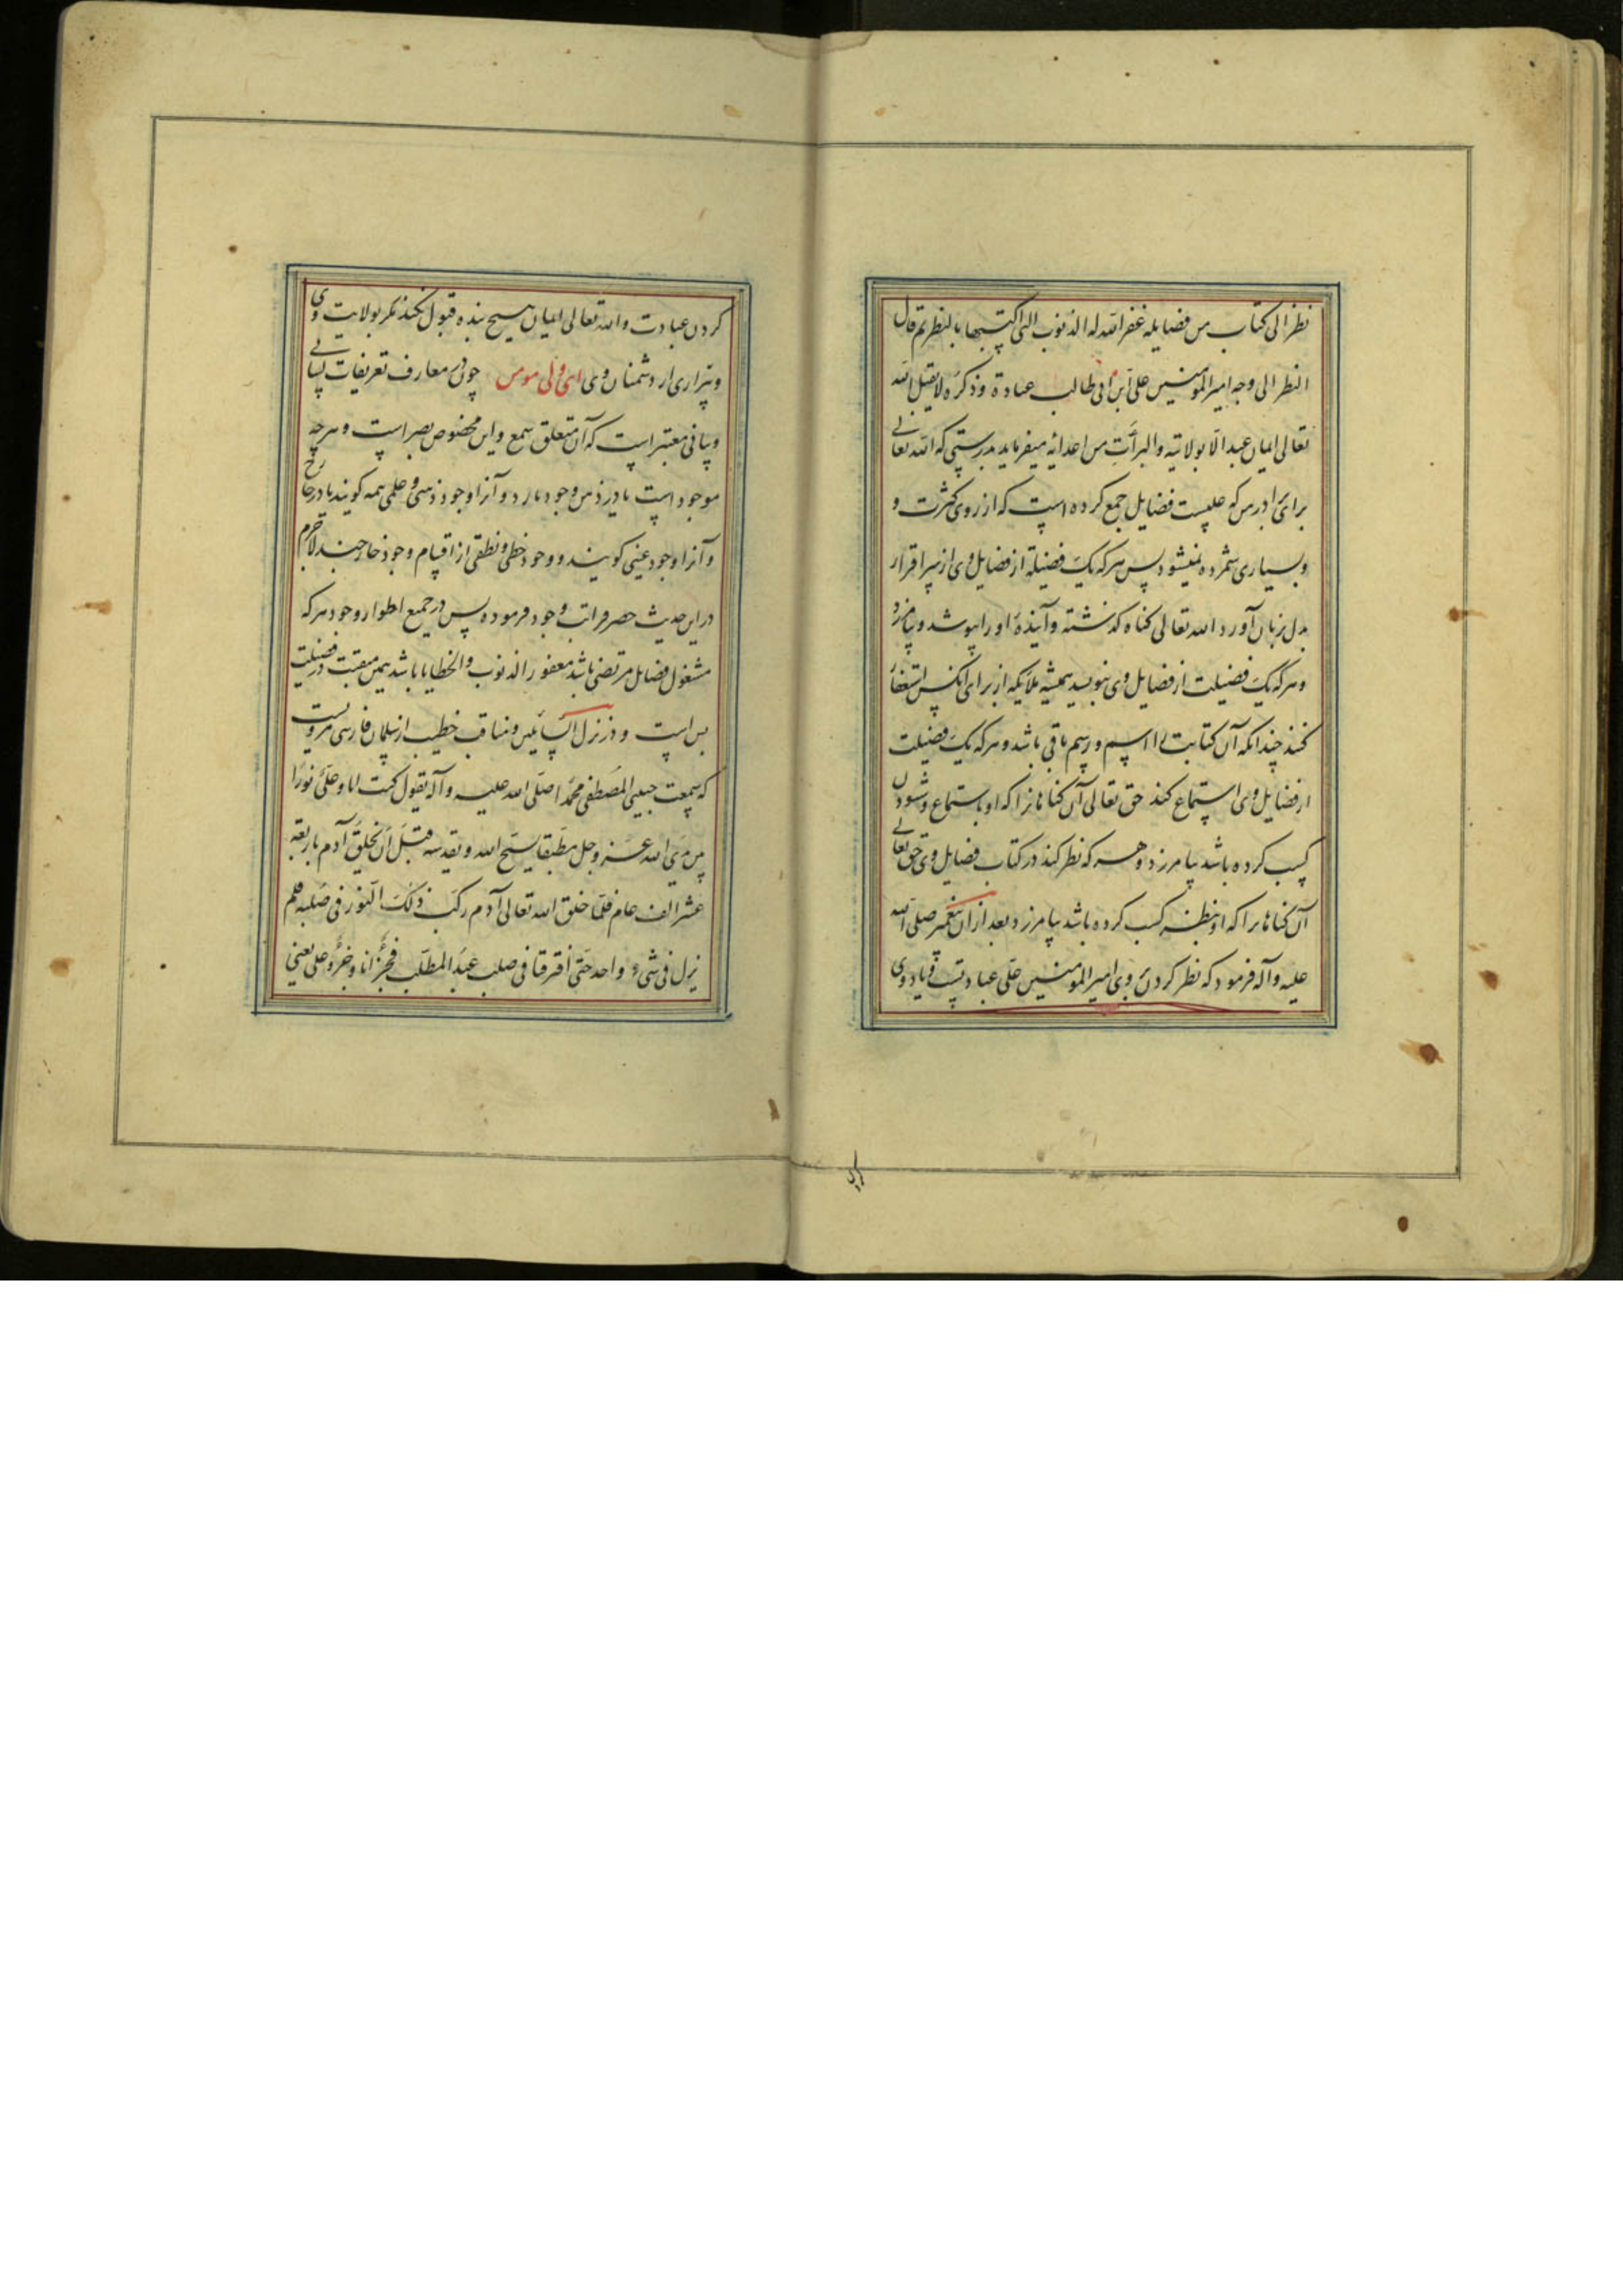 نظر الی کتاب من فضایله غفر الله له الذنوب التی اکتسبها بالنظر ثم قال
النظر الی وجه امیر المومنین علی ابن ابی طالب عبادة و ذکره لا یقبل الله
تعالی ایمان عبد الا بولایته والبرآت من اعدائه میفرماید بدرستی که الله تعالی
برای برادر من که علیست فضایل جمع کرده است که از روی کثرت و
و بسیاری شمرده نمیشود پس هر که یک فضیلة از فضایل وی از سر اقرار
بدل بزبان آورد الله تعالی کناه کذشته و آینده او را بپوشد و بیامرزد
و هر که یک فضیلت از فضایل وی بنویسد همیشه ملایکه از برای آنکس استغفار
کنند چندانکه آن کتابت را اسم و رسم باقی باشد و هر که یک فضیلت
از فضایل وی استماع کند حق تعالی آن کناهانرا که او باستماع و شنودن
کسب کرده باشد بیامرزد و هر که نظر کند در کتاب فضایل وی حق تعالی
آن کناهانرا که او بنظر کسب کرده باشد بیامرزد بعد از آن پیغمبر صلی الله
علیه و آله فرمود که نظر کردن بروی امیر المومنین علی عبادتست و یاد وی
کردن
کردن عبادت و الله تعالی ایمان هیچ بنده قبول نکند مکر بولایت وی
و بیزاری از دشمنان وی ای ولی مومن چون در معارف تعریفات لسانی
و بیانی معتبر است که آن متعلق بسمع و این مخصوص ببصر است و هر چه
موجود است یا در ذهن وجود دارد و آنرا وجود ذهنی و علمی همه کویند یا در خارج
و آنرا وجود عینی کویند و وجود خطی و نطقی از اقسام وجود خارجیند لاجرم
در این حدیث حصر مراتب وجود فرموده پس در جمیع اطوار وجود هر که
مشغول فضایل مرتضی باشد مغفور الذنوب والخطایا باشد همین منقبت در فضیلت
بس است و در نزل السائلین و مناقب خطیب از سلمان فارسی مرویست
که سمعت حبیبی المصطفی محمدا صلی الله علیه و آله یقول کنت انا و علی نورا
بین یدی الله عز و جل مطبقا یسبح الله و یقدسه قبل ان یخلق آدم باربعة
عشر الف عام فلما خلق الله تعالی آدم رکب ذلک النور فی صلبه فلم
نزل فی شیء واحد حتی افترقنا فی صلب عبد المطلب فجزء انا و جزء علی یعنی